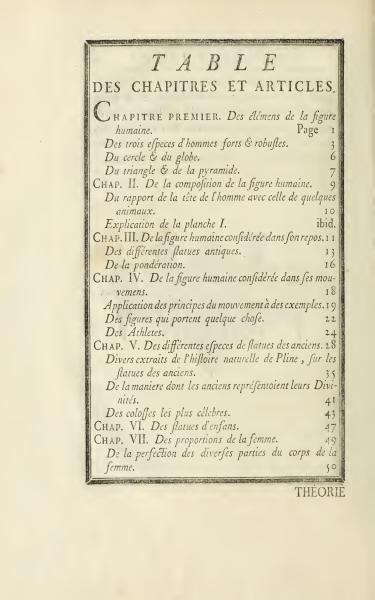 TABLE
DES CHAPITRES ET ARTICLES.
CHAPITRE PREMIER. Des élémens de la figure
humaine. Page 1
Des trois eſpeces d'hommes forts & robuſtes. 3
Du cercle & du globe. 6
Du triangle & de la pyramide. 7
CHAP. II. De la compoſition de la figure humaine. 9
Du rapport de la tête de l'homme avec celle de quelques
animaux. 10
Explication de la planche I. ibid.
CHAP. III. De la figure humaine conſidérée dans ſon repos. 11
Des différentes ſtatues antiques. 13
De la pondération. 16
CHAP. IV. De la figure humaine conſidérée dans ſes mou-
vemens. 18
Application des principes du mouvement à des exemples. 19
Des figures qui portent quelque choſe. 22
Des Athletes. 24
CHAP. V. Des différentes eſpeces de ſtatues des anciens. 28
Divers extraits de l'hiſtoire naturelle de Pline, ſur les
ſtatues des anciens. 35
De la maniere dont les anciens repréſentoient leurs Divi-
nités. 41
Des coloſſes les plus célebres. 43
CHAP. VI. Des ſtatues d'enfans. 47
CHAP. VII. Des proportions de la femme. 49
De la perfection des diverſes parties du corps de la
femme. 50
THÉORIE